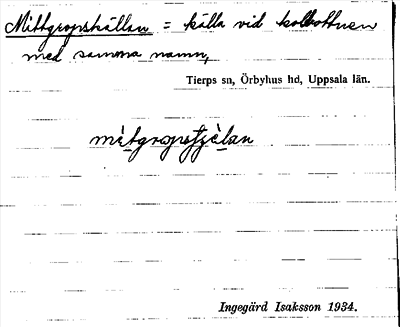 Mittgropskällan = källa vid kolbottnen
med samma namn,
Tierps sn, Örbyhus hd, Uppsala län.
mìtgropsfjälan
Ingegärd Isaksson 1934.